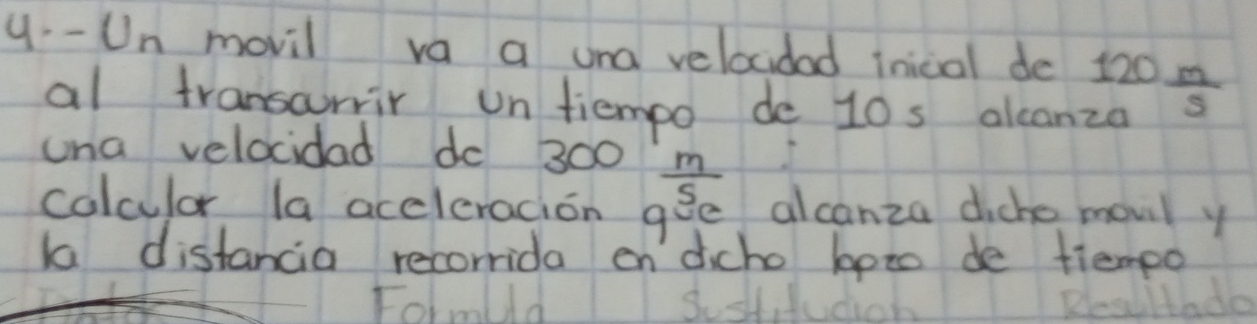 4.- Un movil va a una velocidad inicial de 120 m/s
al transcurrir un tiempo de 10 s alcanza
una velocidad de 300 m/s :
calcular la aceleración que alcanza dicho movil y
la distancia recorrida en dicho lapso de tiempo
Formula Sustitucion Resultado